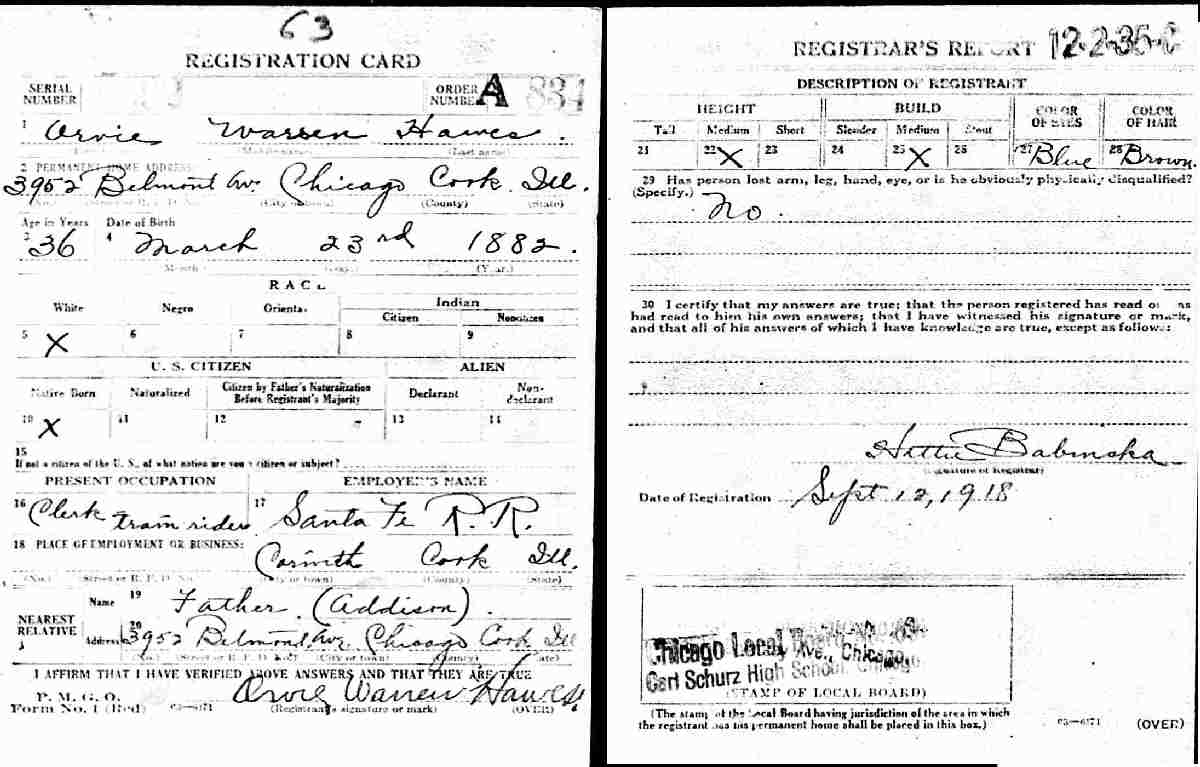 63
REGISTRATION CARD
SERIAL NUMBER
ORDER NUMBER A 834
1 Orvie Warren Hawes.
2 PERMANENT HOME ADDRESS:
3952 Belmont Av. Chicago Cook Ill.
(City or town) (County) (State)
Age in Years Date of Birth
3 36 4 March 23rd 1882.
Month (Day) (Year)
RACE
White Negro Oriental Indian
Citizen Noncitizen
5 X 6 7 8 9
U. S. CITIZEN ALIEN
Native Born Naturalized Citizen by Father's Naturalization Before Registrant's Majority Declarant Non-declarant
10 X 11 12 13 14
15
If not a citizen of the U. S., of what nation are you a citizen or subject?
PRESENT OCCUPATION EMPLOYER'S NAME
16 Clerk train rider 17 Santa Fe R.R.
18 PLACE OF EMPLOYMENT OR BUSINESS:
Cook Ill.
(City or town) (County) (State)
NEAREST RELATIVE
Name 19 Father. (Addison).
Address 20 3952 Belmont Av. Chicago Cook Ill
(No.) (Street or R. F. D. No.) (City or town) (County) (State)
I AFFIRM THAT I HAVE VERIFIED ABOVE ANSWERS AND THAT THEY ARE TRUE
P. M. G. O.
Form No. 1 (Red) 03—6171 Orvie Warren Hawes.
(Registrant's signature or mark) (OVER)
REGISTRAR'S REPORT 12-2-35-C
DESCRIPTION OF REGISTRANT
HEIGHT BUILD COLOR OF EYES COLOR OF HAIR
Tall Medium Short Slender Medium Stout
21 22 X 23 24 25 X 26 27 Blue 28 Brown
29 Has person lost arm, leg, hand, eye, or is he obviously physically disqualified?
(Specify.) No.
30 I certify that my answers are true; that the person registered has read or has
had read to him his own answers; that I have witnessed his signature or mark,
and that all of his answers of which I have knowledge are true, except as follows:
Hattie Babinska
(Signature of Registrar)
Date of Registration Sept 12, 1918
Chicago Local
Ave., Chicago
Carl Schurz High School, Chicago
(STAMP OF LOCAL BOARD)
(The stamp of the Local Board having jurisdiction of the area in which
the registrant has his permanent home shall be placed in this box.)
03—6171 (OVER)